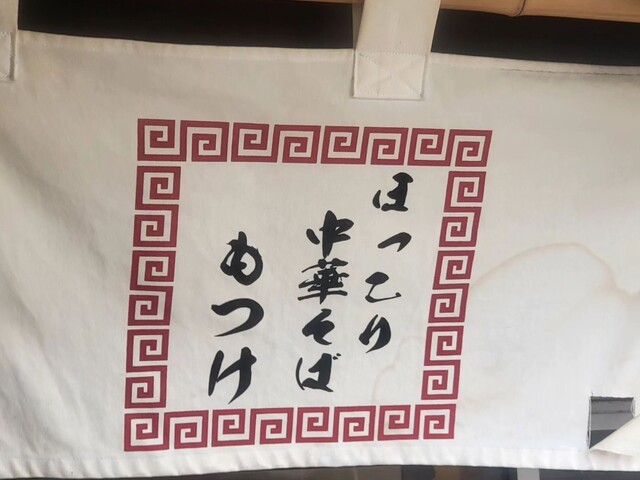 ほっこり
中華そば
もつけ